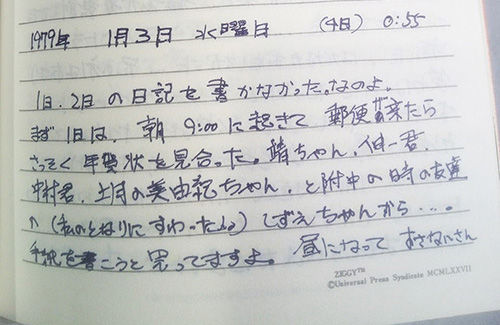 1979年 1月3日 水曜日 (4日) 0:55
1日、2日の日記を書かなかった。なのよ。
まず1日は、朝9:00に起きて郵便が来たら
さっそく年賀状を見合った。靖ちゃん、伸一君、
中村君、土月の美由紀ちゃん、と附中の時の友達
へ(私のとなりにすわった人。)しずえちゃんから…。
手紙を書こうと思ってますよ。昼になって おさないさん
ZIGGY™
©Universal Press Syndicate MCMLXXVII